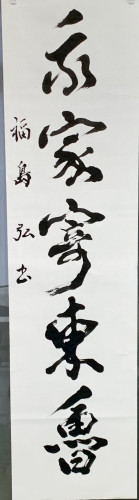 我家寄東魯
福島弘書